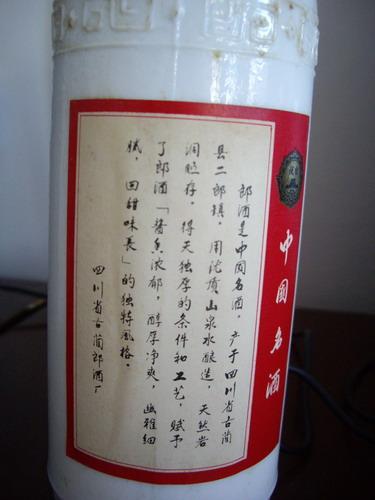 中国名酒
郎酒是中国名酒，产于四川省古蔺
县二郎镇，用沱顶山泉水酿造，天然岩
洞贮存，得天独厚的条件和工艺，赋予
了郎酒「醬香浓郁，醇厚净爽，幽雅细
腻，回甜味長」的独特風格。
四川省古蔺郎酒厂